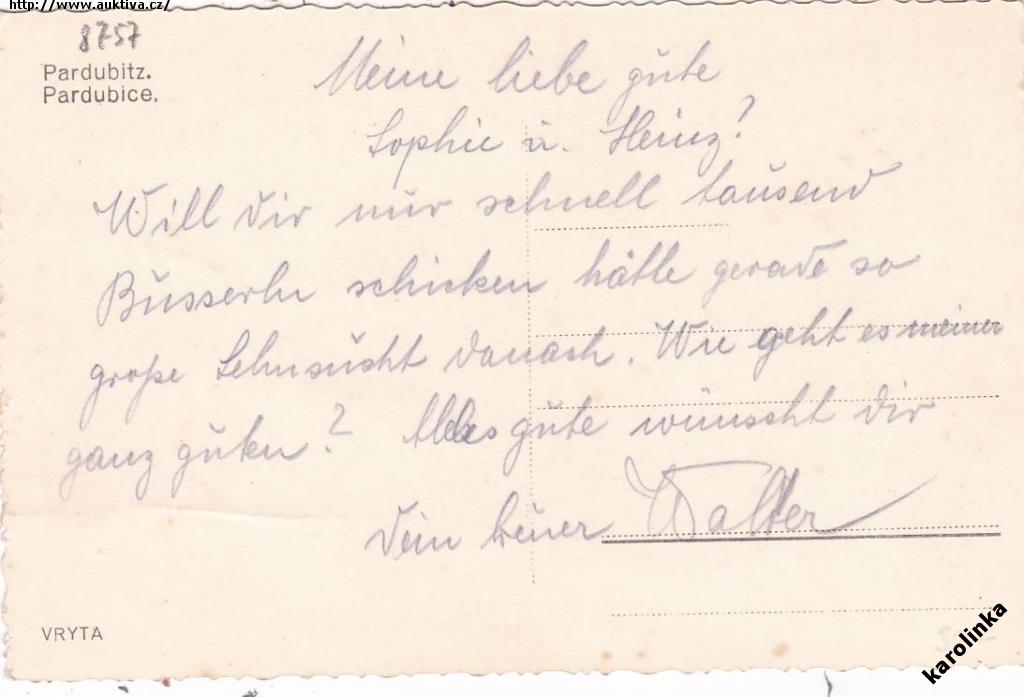 http://www.auktiva.cz/
8757
Pardubitz.
Pardubice.
Meine liebe gute
Sophie u. Heinz!
Will dir nur schnell tausend
Busserln schicken hätte gerade so
große Sehnsucht danach. Wie geht es meiner
ganz guten? Alles gute wünscht dir
dein treuer Walter
VRYTA
karolinka